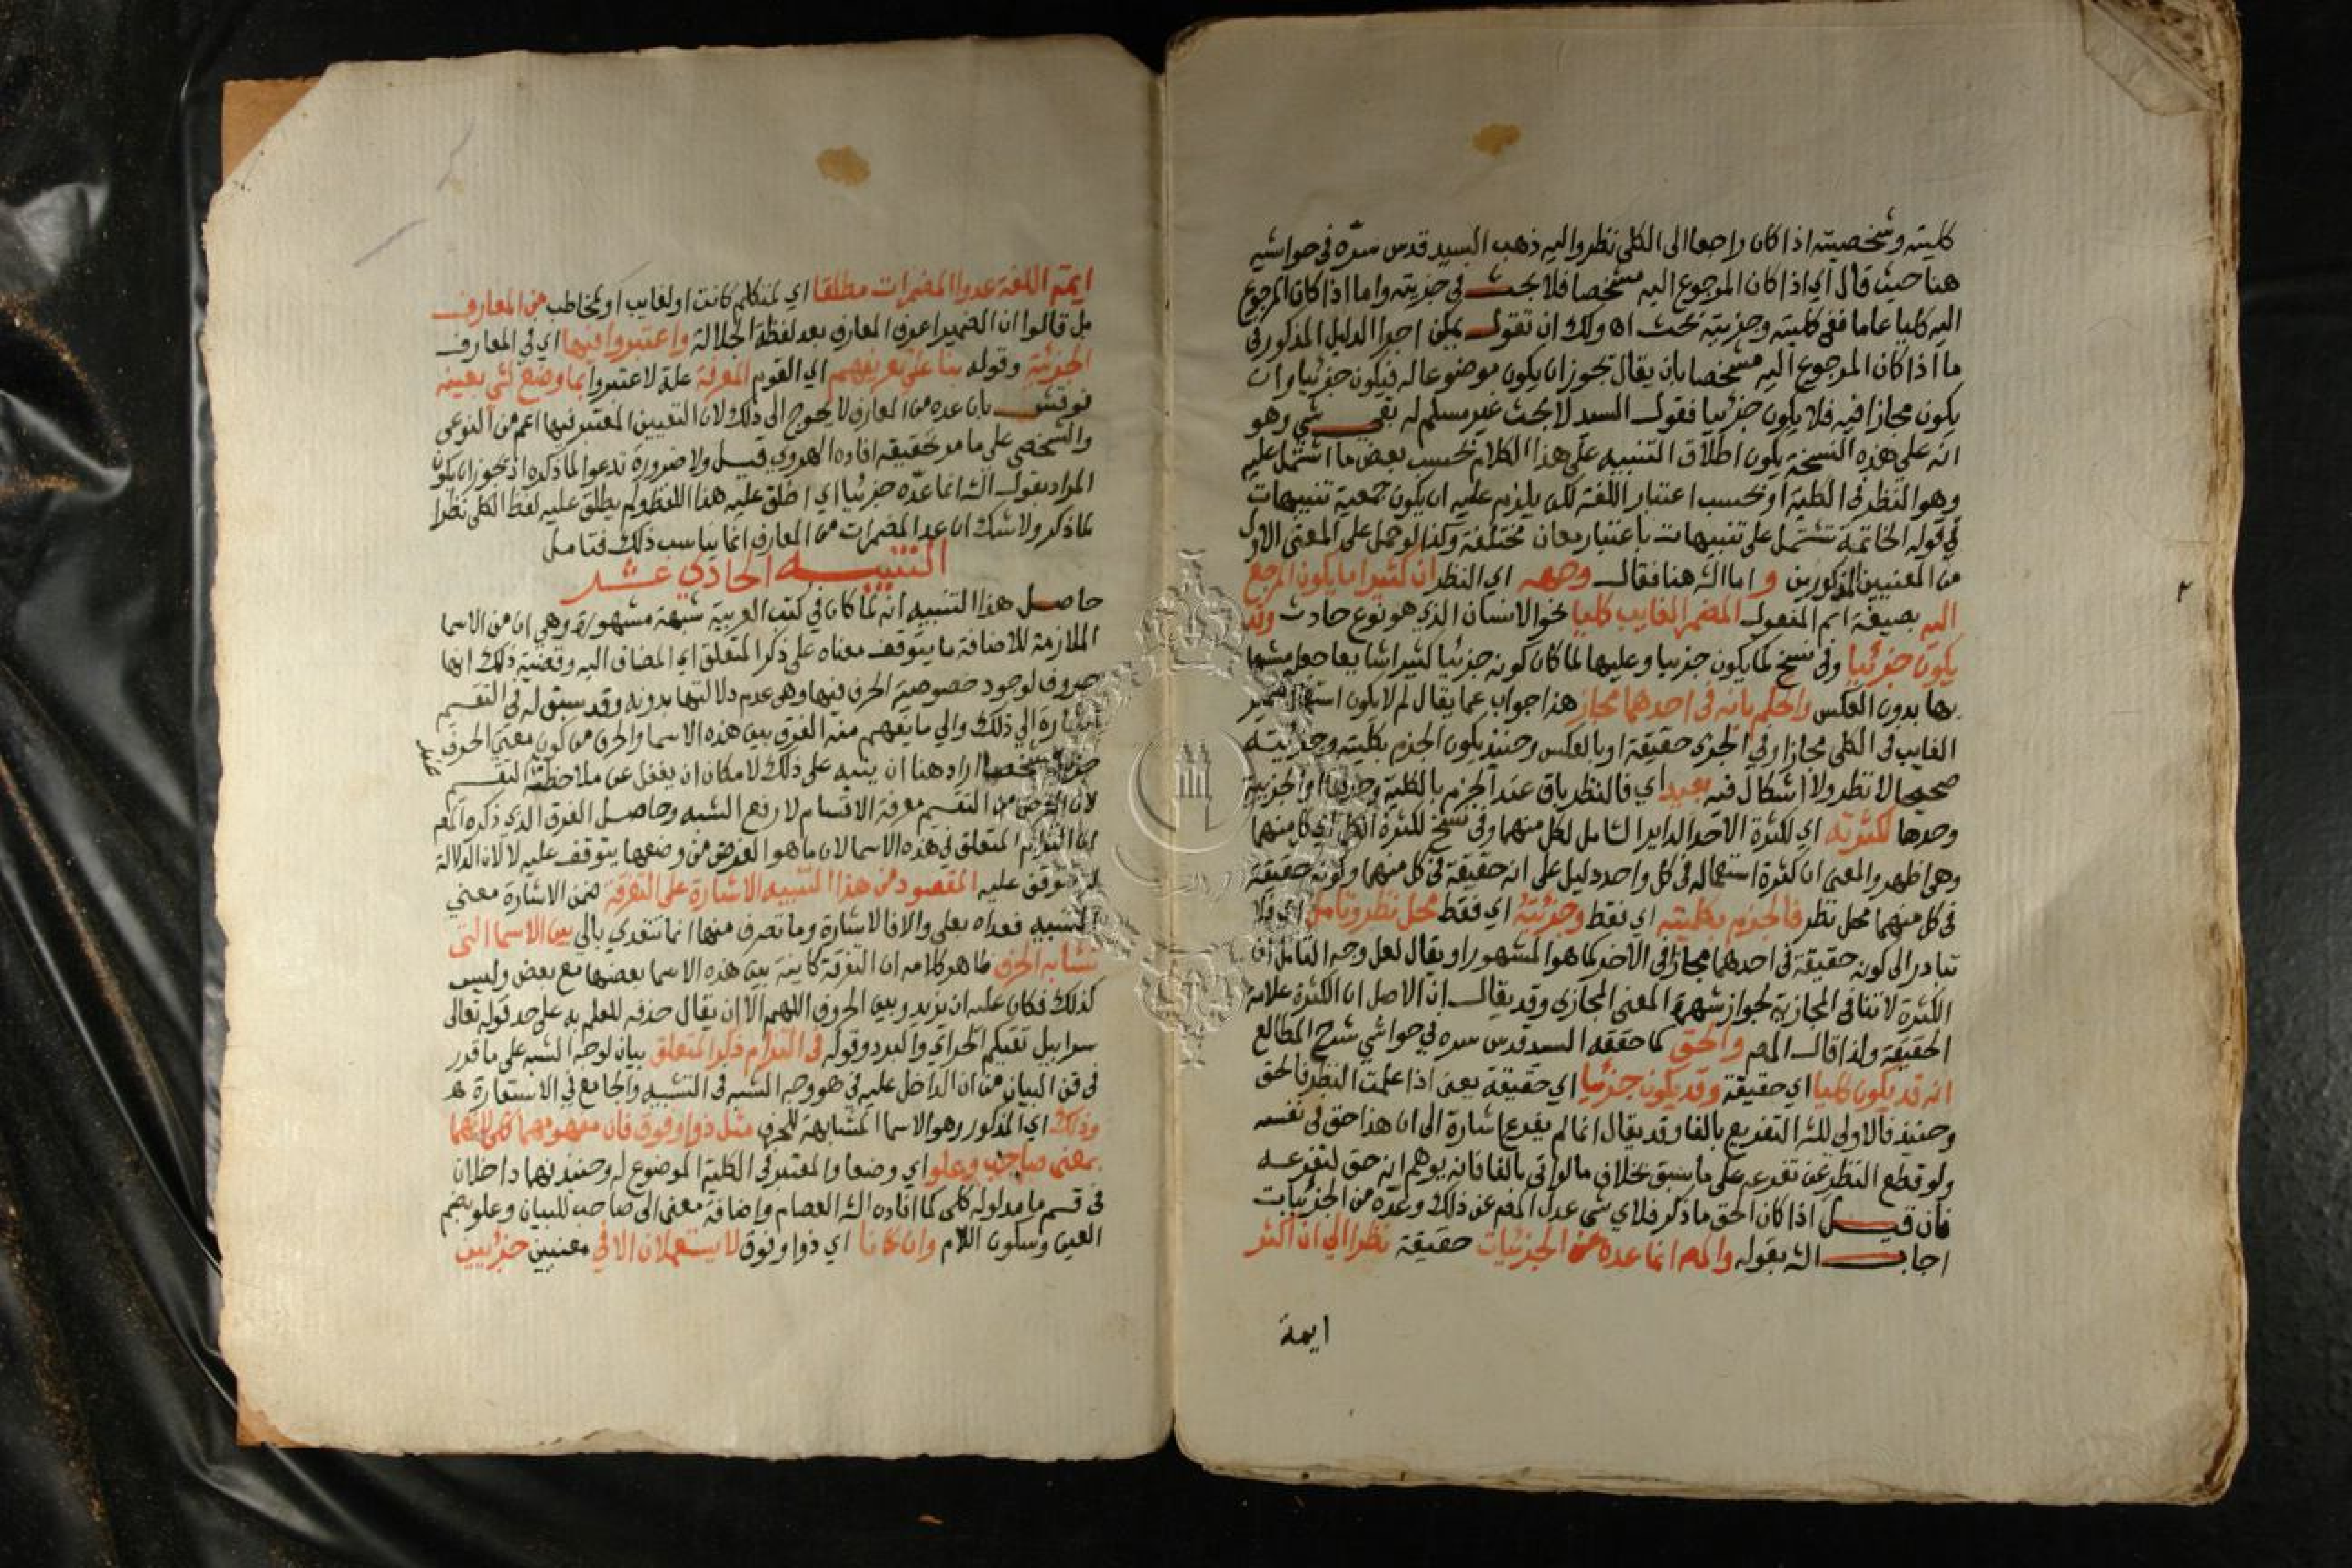 كليته وشخصيته اذا كان راجعا الى الكلي نظر واليه ذهب السيد قدس سره في حواشيه
هنا حيث قال اي اذا كان المرجوع اليه مشخصا فلا بحث في جزيته واما اذا كان المرجوع
اليه كليا عاما ففي كليته وجزييته بحث اه ولك ان تقول يمكن اجرا الدليل المذكور في
ما اذا كان المرجوع اليه مشخصا بان يقال يجوز ان يكون موضوعا له فيكون جزئيا وان
يكون مجازا فيه فلا يكون جزئيا فقول السيد لا بحث غير مسلم له بقي شي وهو
انه على هذه النسخة يكون اطلاق التنبيه على هذا الكلام بحسب بعض ما اشتمل عليه
وهو النظر في الكلية او بحسب اعتبار اللغة لكن يلزم عليه ان يكون جمعية تنبيهات
في قوله الخاتمة تشتمل على تنبيهات باعتبار معان مختلفة وكذا لو حمل على المعنى الاول
من المعنيين المذكورين و اما الش هنا فقال وجهه اي النظر ان كثيرا ما يكون المرجع
اليه بصيغة اسم المفعول المضمر الغايب كليا نحو الانسان الذي هو نوع حادث وقد
يكون جزئيا وفي نسخ لما يكون جزييا وعليها لما كان كونه جزئيا كثيرا شايعا جعل مشبها
بها بدون العكس والحكم بانه في احدهما مجاز هذا جواب عما يقال لم لا يكون استعمال ضمير
الغايب في الكلي مجازا وفي الجزي حقيقة او بالعكس وحينئذ يكون الجزم بكليته وجزييته
صحيحا لا نظر ولا اشكال فيه بعيد اي فالنظر باق عند الجزم بالكلية وحدها او الجزيية
وحدها لكثرته اي لكثرة الاحد الداير الشامل لكل منهما وفي نسخ لكثرة الكل اي كل منهما
وهي اظهر والمعنى ان كثرة استعماله في كل واحد دليل على انه حقيقة في كل منهما وكونه حقيقة
في كل منهما محل نظر فالجزم بكليته اي فقط وجزئيته اي فقط محل نظر وتامل اي فلا
تبادر الى كونه حقيقة في احدهما مجازا في الاخر كما هو المشهور او يقال لعل وجه التامل ان
الكثرة لا تنافي المجازية لجواز شهرة المعنى المجازي وقد يقال ان الاصل ان الكثرة علامة
الحقيقة ولذا قال المص والحق كما حققه السيد قدس سره في حواشي شرح المطالع
انه قد يكون كليا اي حقيقة وقد يكون جزئيا اي حقيقة يعني اذا علمت النظر فالحق
وحينئذ فالاولى للش التفريع بالفا وقد يقال انما لم يفرع اشارة الى ان هذا حق في نفسه
ولو قطع النظر عن تفرعه على ما سبق بخلاف ما لو اتى بالفا فانه يوهم انه حق لتفرعه
فان قيل اذا كان الحق ما ذكر فلاي شي عدل المص عن ذلك وعده من الجزئيات
اجاب الش بقوله والمص انما عده من الجزئيات حقيقة نظرا الى ان اكثر
ايمة
ايمة اللغة عدوا المضمرات مطلقا اي لمتكلم كانت او لغايب او لمخاطب من المعارف
بل قالوا ان الضمير اعرف المعارف بعد لفظة الجلالة واعتبروا فيها اي في المعارف
الجزئية وقوله بنا على تعريفهم اي القوم المعرفة علة لاعتبروا بما وضع لشي بعينه
نوقش بان عده من المعارف لا يحوج الى ذلك لان التعيين المعتبر فيها اعم من النوعي
والشخصي على ما مر تحقيقه افاده الهروي قيل ولا ضرورة تدعوا لما ذكره اذ يجوز ان يكون
المراد بقول الش انما عده جزئيا اي اطلق عليه هذا اللفظ ولم يطلق عليه لفظ الكلي نظرا
لما ذكر ولا شك ان عد المضمرات من المعارف انما يناسب ذلك فتامل
التنبيه الحادي عشر
حاصل هذا التنبيه انه لما كان في كتب العربية شبهة مشهورة وهي ان من الاسما
الملازمة للاضافة ما يتوقف معناه على ذكر المتعلق اي المضاف اليه وقضية ذلك انها
حروف لوجود خصوصية الحرف فيها وهي عدم دلالتها بدونه وقد سبق له في التقسيم
اشارة الى ذلك والى ما يفهم منه الفرق بين هذه الاسما والحرف من كون معنى الحرف
مشخصا اراد هنا ان ينبه على ذلك لامكان ان يغفل عن ملاحظة التقسيم
لان الغرض من التقسيم معرفة الاقسام لا رفع الشبه وحاصل الفرق الذي ذكره المص
ان التزام المتعلق في هذه الاسما لان ما هو الغرض من وضعها يتوقف عليه لا لان الدلالة
تتوقف عليه المقصود من هذا التنبيه الاشارة على التفرقة ضمن الاشارة معنى
التنبيه فعداه بعلى والا فالاشارة وما تصرف منها انما تتعدي بالى بين الاسما التي
تشابه الحرف ظاهر كلامه ان التفرقة كاينة بين هذه الاسما بعضها مع بعض وليس
كذلك فكان عليه ان يزيد وبين الحروف اللهم الا ان يقال حذفه للعلم به على حد قوله تعالى
سرابيل تقيكم الحر اي والبرد وقوله في التزام ذكر المتعلق بيان لوجه الشبه على ما قدر
في فن البيان من ان الداخل عليه في هو وجه الشبه في التشبيه والجامع في الاستعارة ه
وذلك اي المذكور وهو الاسما المشابهة للحرف مثل ذو وفوق فان مفهومهما كلي لانهما
بمعنى صاحب وعلو اي وضعا والمعتبر في الكلية الموضوع له وحينئذ فهما داخلان
في قسم ما مدلوله كلي كما افاده الش العصام واضافة معنى الى صاحب للبيان وعلو بضم
العين وسكون اللام وان كانا اي ذو وفوق لا يستعملان الا في معنيين جزئيين